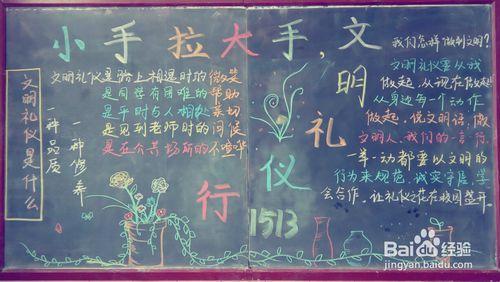 小手拉大手，文明礼仪行
文明礼仪是什么
一种品质
一种修养
文明礼仪是路上相遇时的微笑
是同学有困难的帮助
是平时与人相处亲切
是见到老师时的问候
是在公共场所的不喧哗
1513
我们怎样做到文明？
文明礼仪要从我
做起，从现在做起
从身边每个动作
做起，说文明话，做
文明人，我们的一言一行，
一举一动都要以文明的
行为来规范，诚实守信，学
会合作，让礼仪之花在校园盛开。
Baidu经验
jingyan.baidu.com